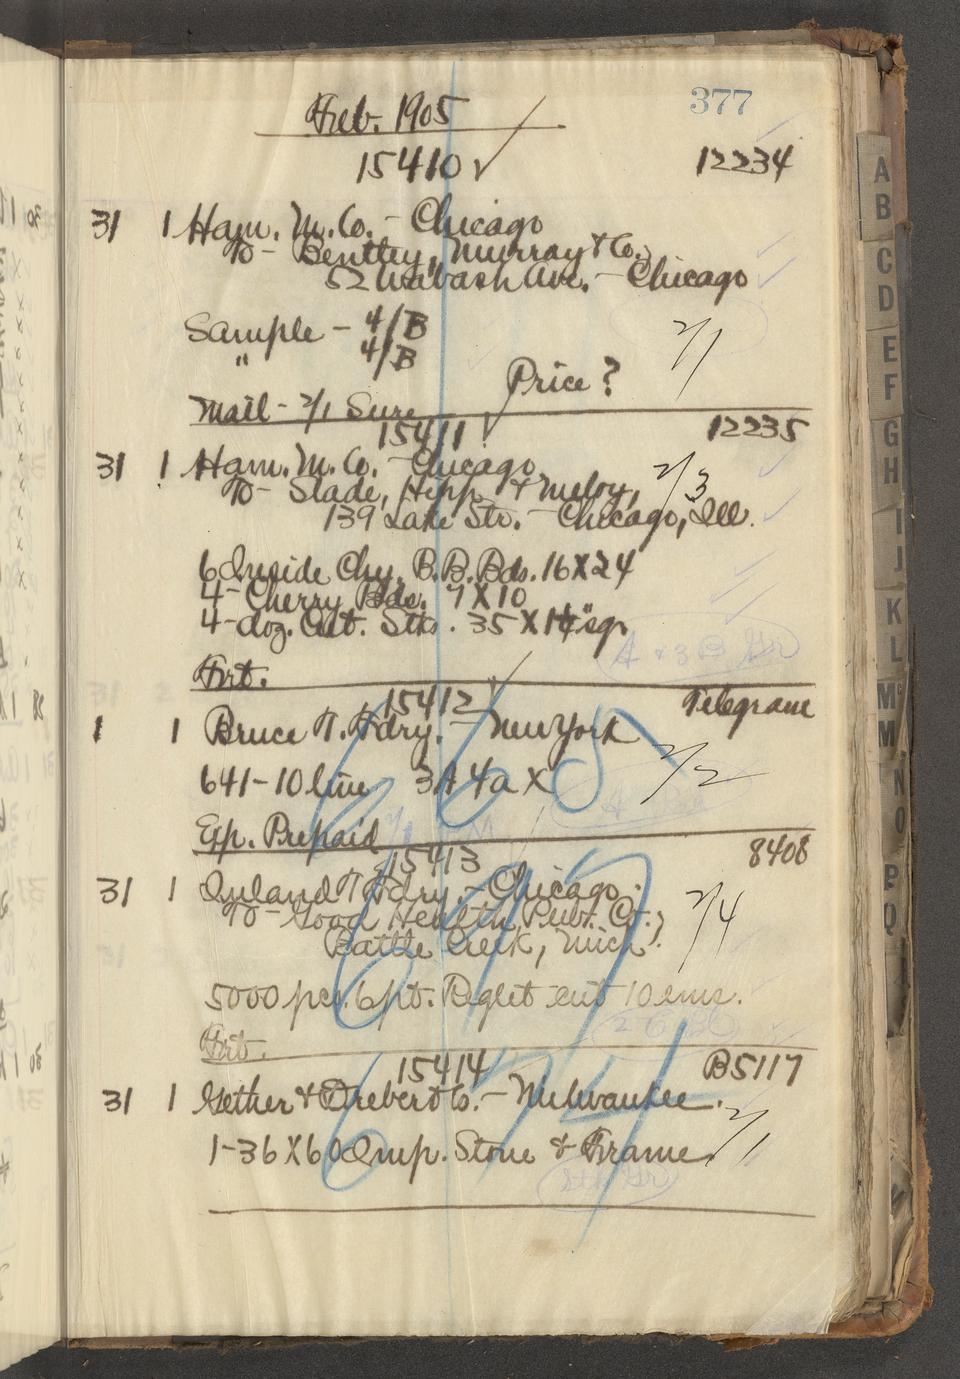 377
Feb. 1905
15410 ✓
12234
31 1 Ham. M. Co. - Chicago
To - Bentley, Murray & Co.,
52 Wabash Ave. - Chicago
Sample - 4/B
" 4/B
2/1
Price?
Mail - 2/1 Sure
15411
12235
31 1 Ham. M. Co. - Chicago
2/3
To - Slade, Hipp & Meloy,
139 Lake Str. - Chicago, Ill.
6 Inside Chy. B.B. Bds. 16X24
4 - Cherry Bds. 7X10
4 - doz. Cut. Stks. 35 X 1/4" sqr
A & B Gr
Frt.
15412
Telegram
1 1 Bruce T. Fdry. - New York
641 - 10 line 3A 4a X
2/2
Exp. Prepaid
15413
8408
31 1 Inland T Fdry. - Chicago.
To - Good Health Pub. Co.,
2/4
Battle Creek, Mich.
5000 pcs. 6 pt. Reglet cut 10 ems.
Frt.
15414
B5117
31 1 Gether & Drebert Co. - Milwaukee.
2/1
1 - 36 X 60 Imp. Stone & Frame
A
B
C
D
E
F
G
H
I
J
K
L
M
M
N
O
P
Q